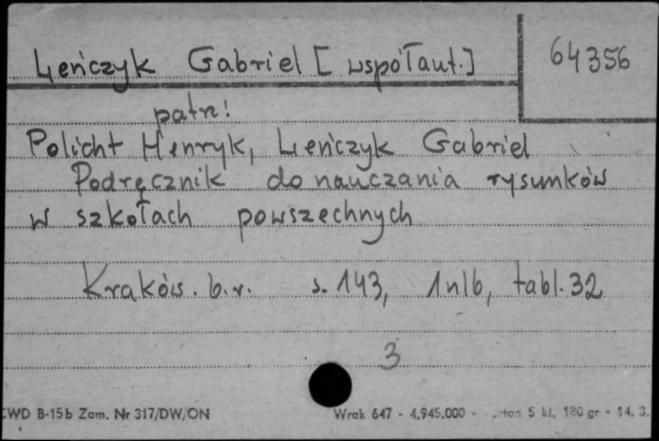 Leńczyk Gabriel [współaut.]
64356
patrz!
Policht Henryk, Leńczyk Gabriel
Podręcznik do nauczania rysunków
w szkołach powszechnych
Kraków. b.r. s. 143, 1 nlb, tabl. 32
3
CWD B-15b Zam. Nr 317/DW/ON
Wrak 647 - 4.945.000 - 5 kl. 180 gr - 14. 3.